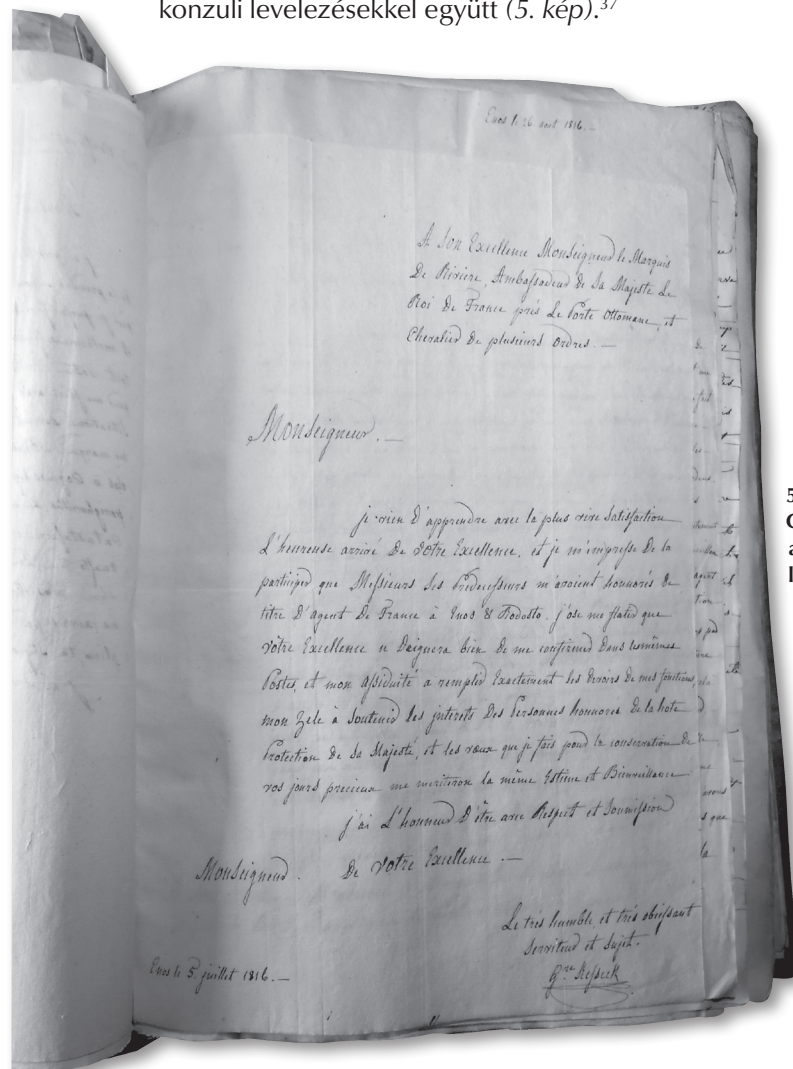 konzuli levelezésekkel együtt (5. kép).³⁷
Enos le 26 aout 1816. —
A Son Excellence Monseigneur le Marquis
De Riviere, Ambassadeur de Sa Majesté Le
Roi De France près La Porte Ottomane, et
Chevalier De plusieurs Ordres. —
Monseigneur. —
je vien D'apprendre avec la plus vive Satisfaction
L'heureuse arrivé De Vôtre Excellence, et je m'empresse De la
participer que Messieurs Ses Prédecesseurs m'avoient honnorés De
titre D'agent De France à Enos & Rodosto. j'ose me flater que
Vôtre Excellence n Daignera bien De me confirmer Dans les mêmes
Postes, et mon assiduité a remplir Exactement les Devoirs De mes fonctions,
mon Zele à Soutenir les interets Des Personnes honnorés De la hote
Protection De Sa Majesté, et les vœux que je fais pour la conservation De
vos jours precieux me meriteron la même Estime et Bienveillance
j'ai L'honneur D'être avec Respect et Soumission
Monseigneur. De Vôtre Excellence. —
Le très humble, et très obeissant
Serviteur et Sujet.
Enos le 5. juillet 1816. —
5